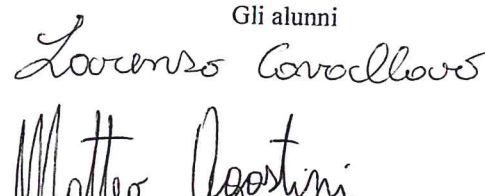 Gli alunni
Lorenzo Cavallaro
Matteo Agostini